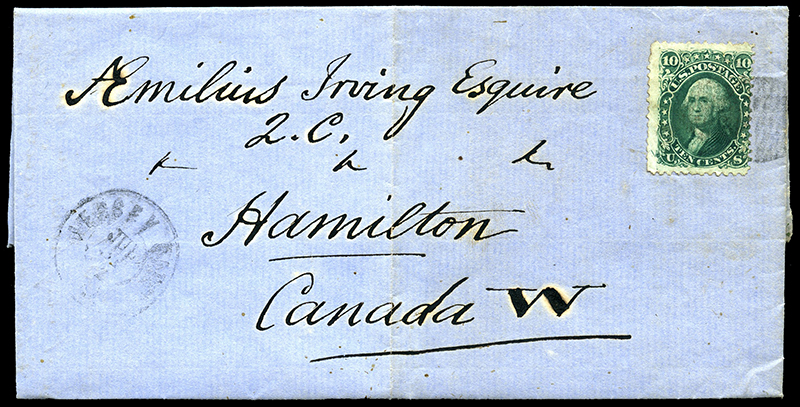 10 10
U.S. POSTAGE
TEN CENTS.
U S
Æmilius Irving Esquire
Q.C.
Hamilton
Canada W
JERSEY